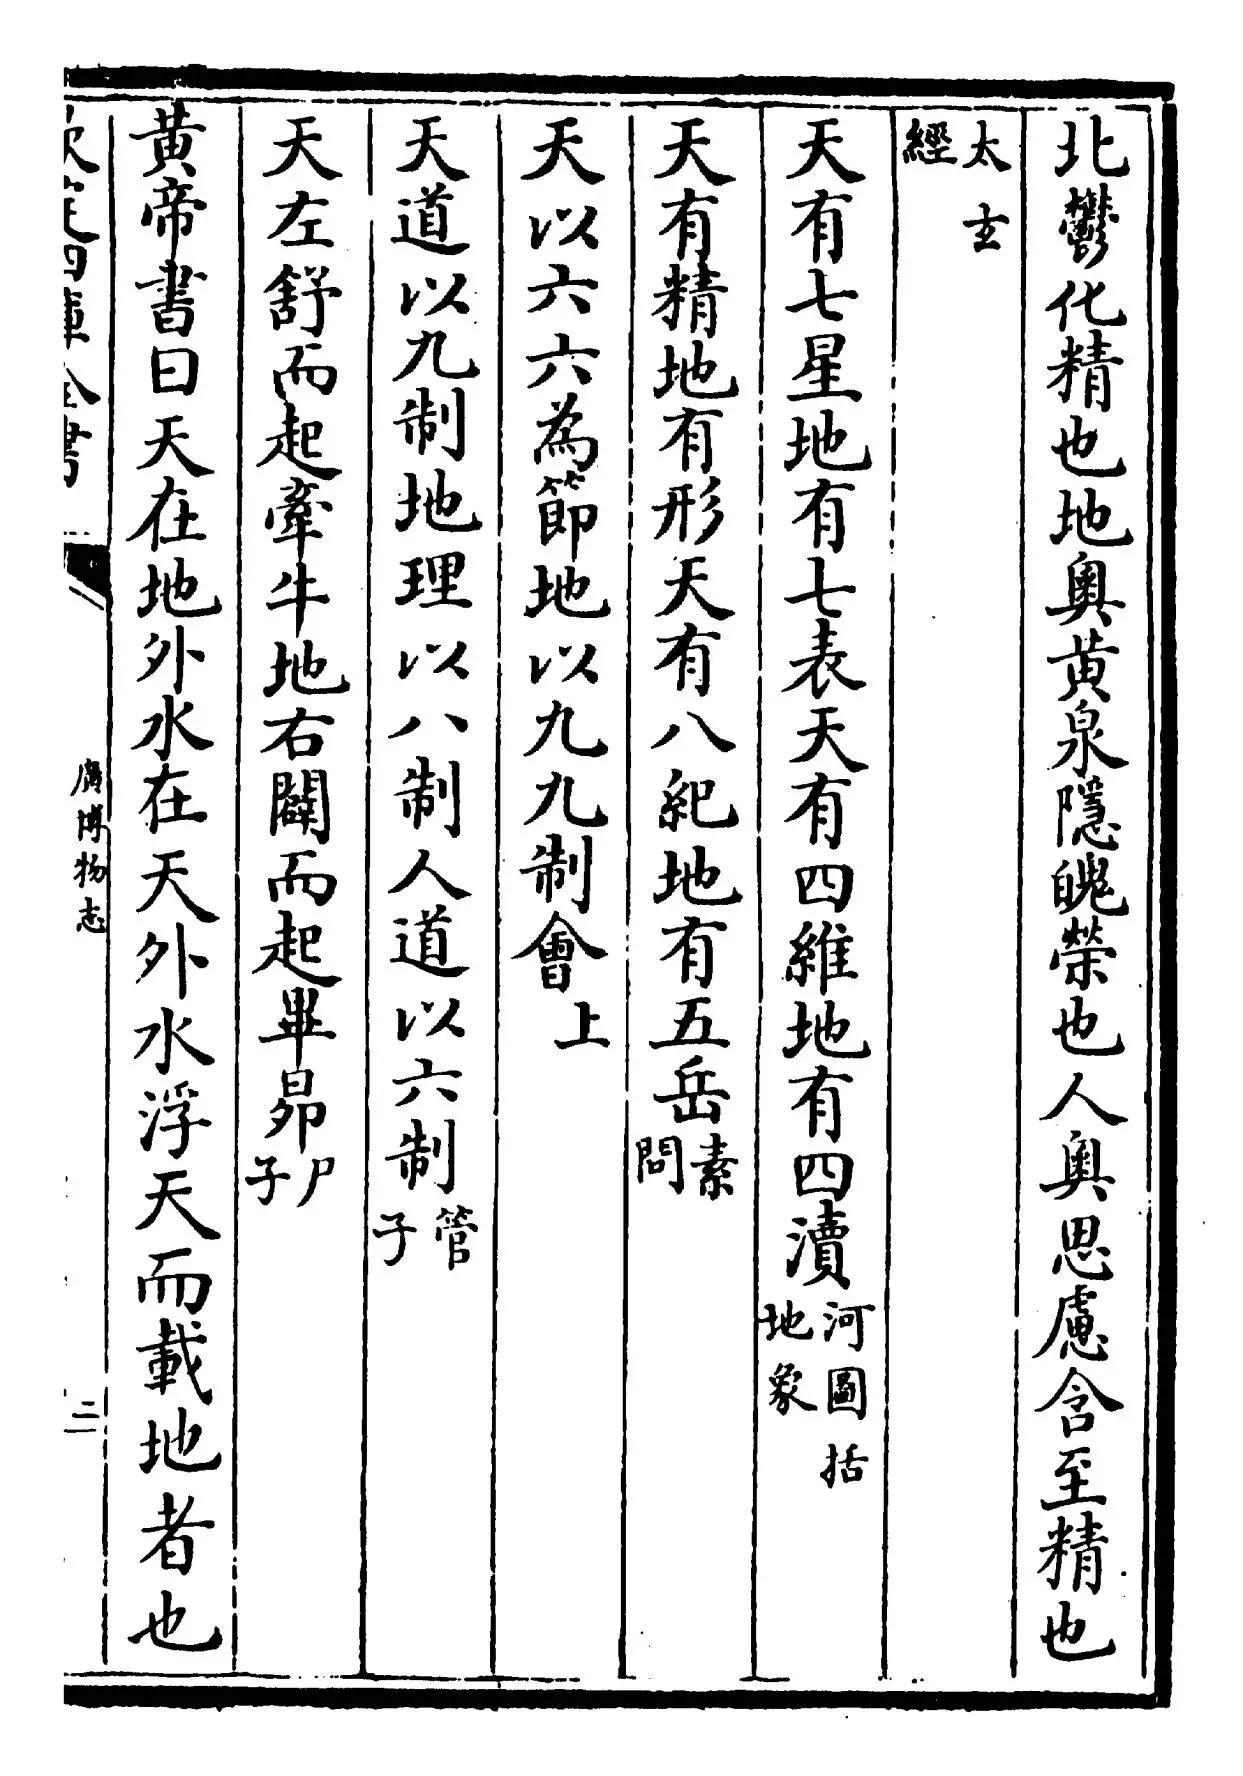 北鬱化精也地奥黄泉隱魄榮也人奥思慮含至精也
太玄
經
天有七星地有七表天有四維地有四瀆河圖括
地象
天有精地有形天有八紀地有五岳素
問
天以六六為節地以九九制會上
天道以九制地理以八制人道以六制管
子
天左舒而起牽牛地右闢而起畢昴尸
子
黄帝書曰天在地外水在天外水浮天而載地者也
欽定四庫全書
廣博物志
二